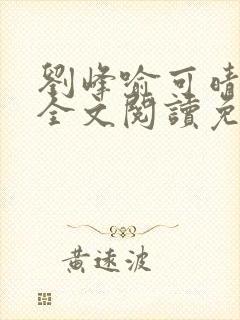 劉峰喻可晴
全文閱讀免
黃遠波